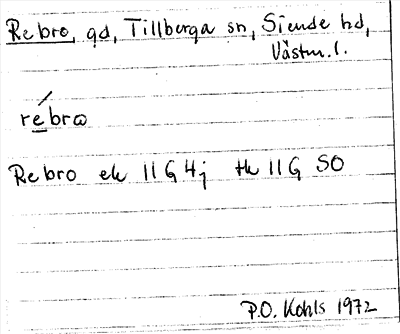 Rebro, gd, Tillberga sn, Siende hd,
Västm. l.
rébrω
Rebro ek 11G 4j tk 11G SO
P.O. Kohls 1972